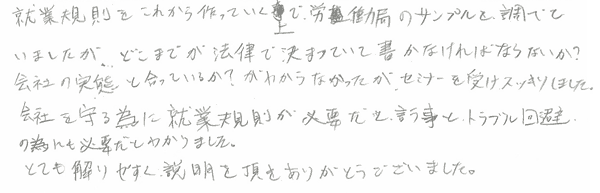 就業規則をこれから作っていく上で、労働局のサンプルを調べて
いましたが、どこまでが法律で決まっていて書かなければならないか?
会社の実態と合っているか?がわからなかったが、セミナーを受けスッキリしました。
会社を守る為に就業規則が必要だと言う事と、トラブル回避
の為にも必要だとわかりました。
とても解りやすく説明を頂きありがとうございました。